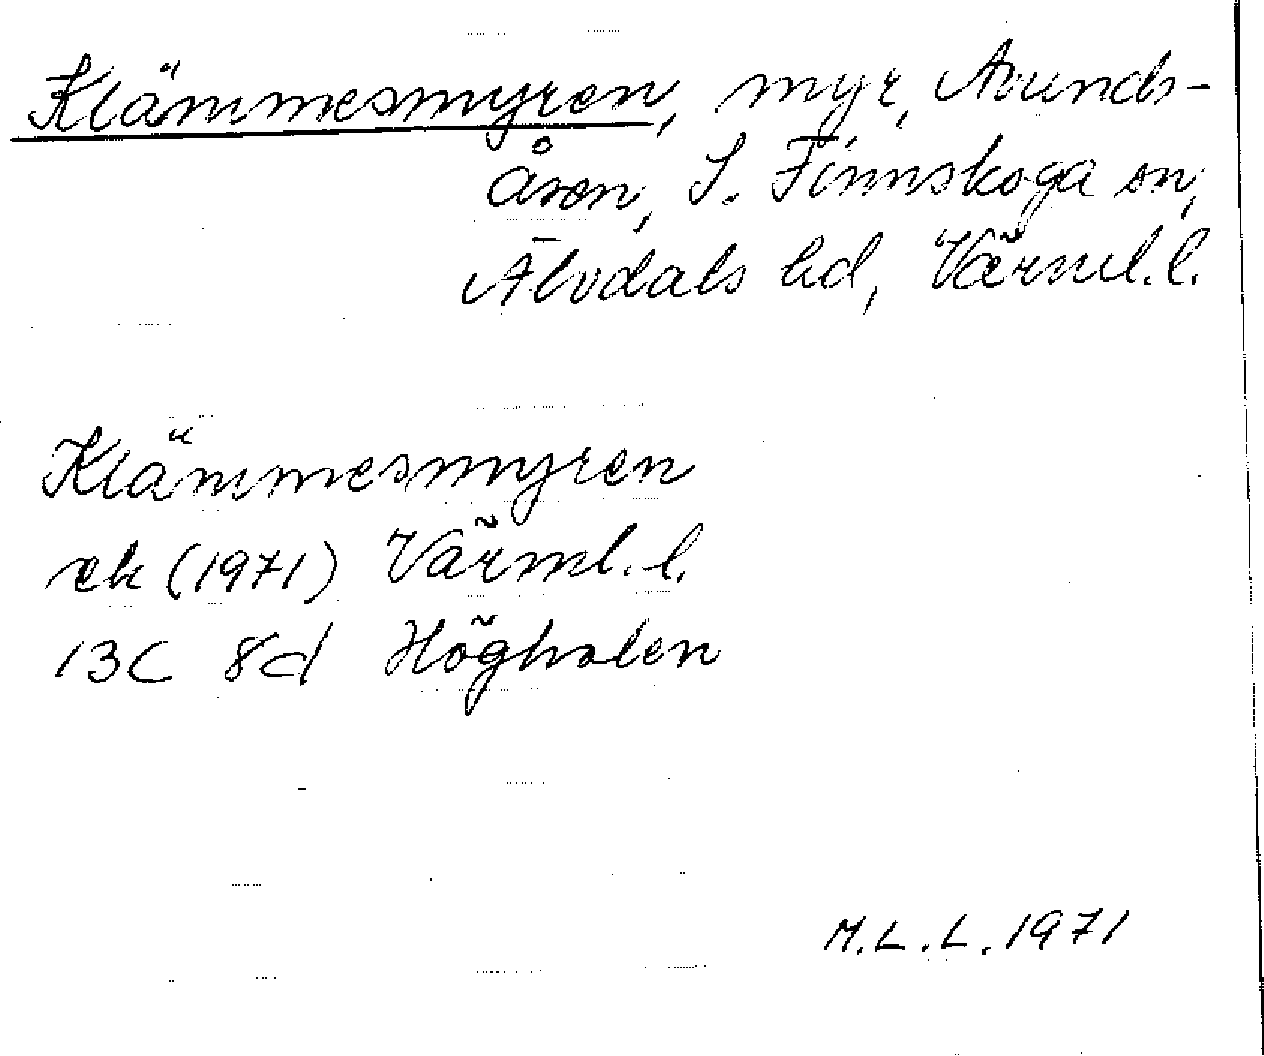 Klämmesmyren, myr, Avunds-
åsen, S. Finnskoga sn,
Älvdals hd, Värml. l.
Klämmesmyren
ek (1971) Värml. l.
13C 8d Höghalen
M.L.L. 1971